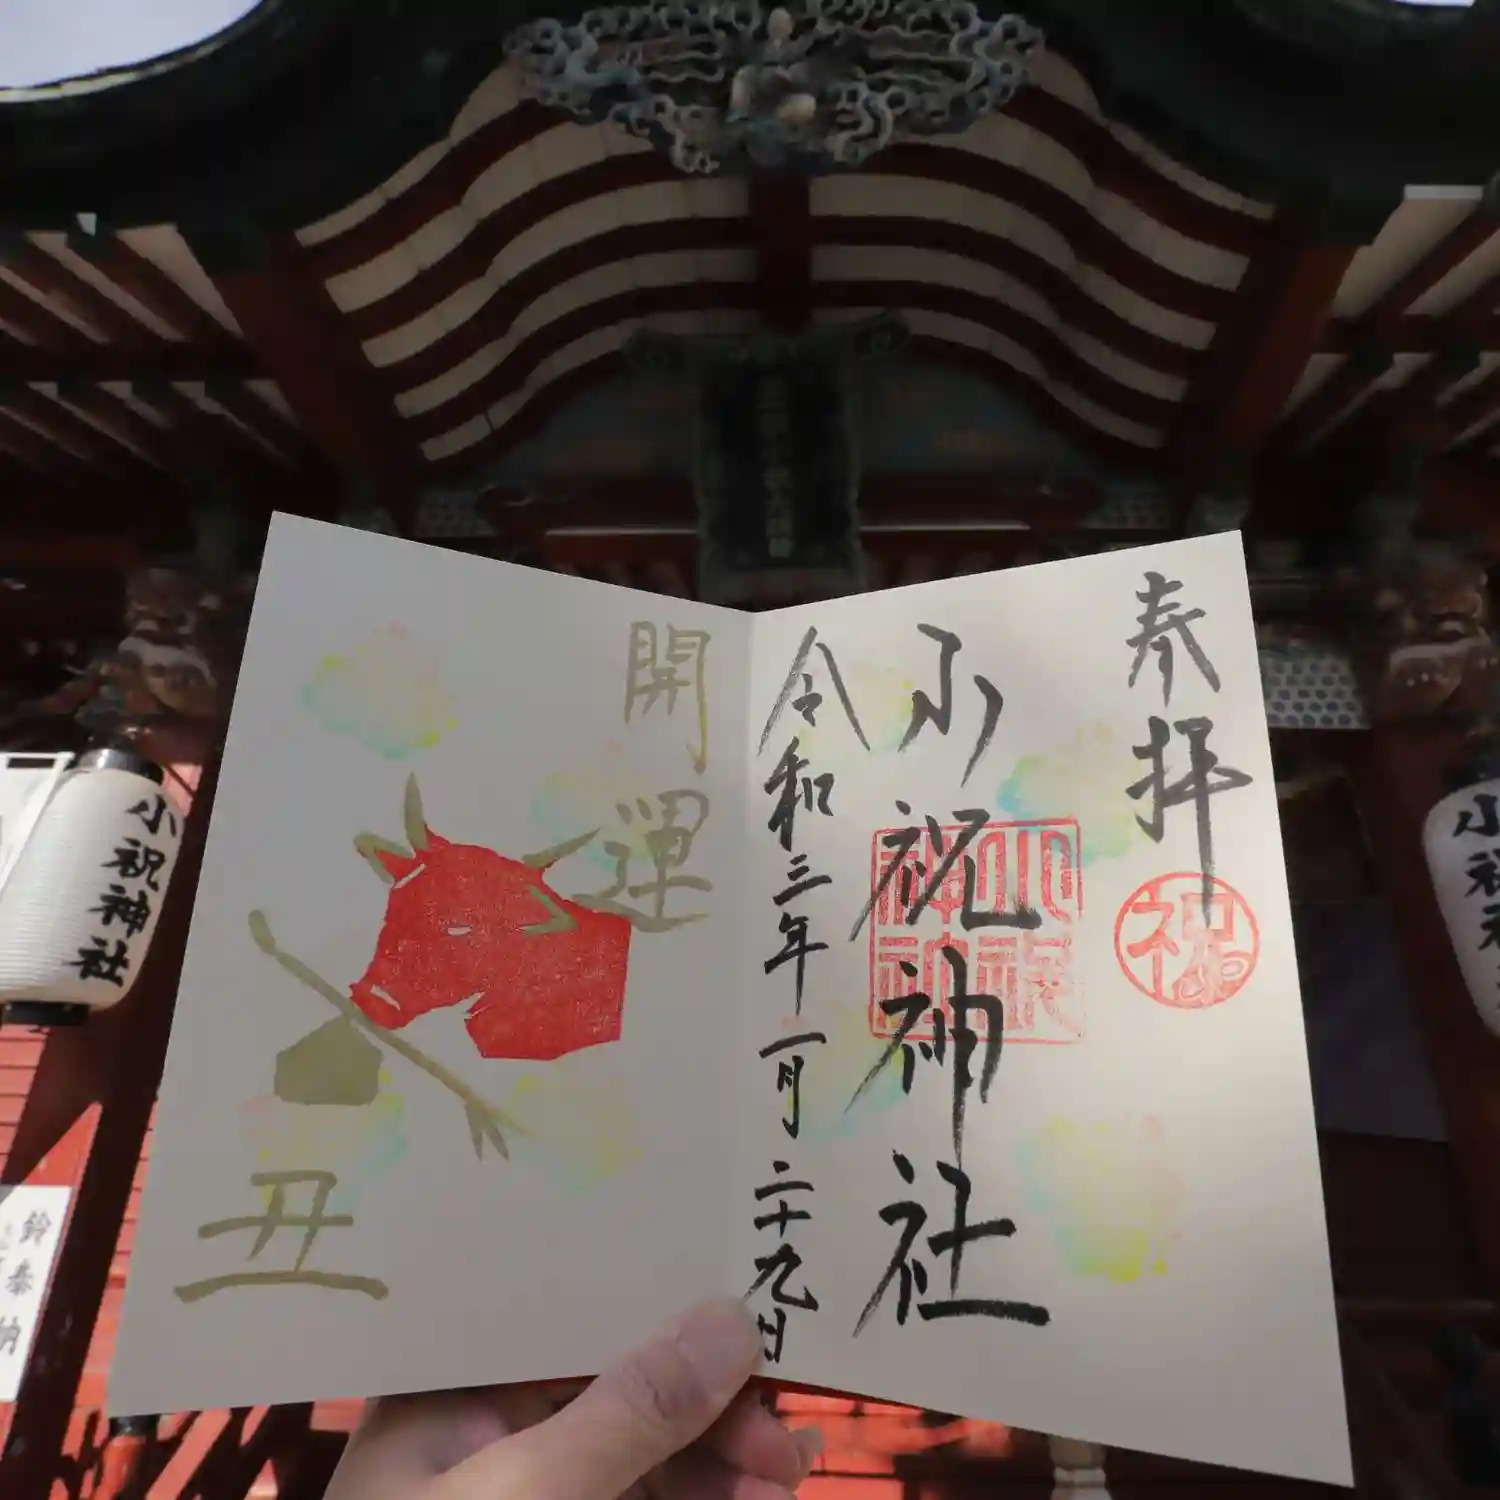 奉拝
祝
小祝神社
小祝
神社
令和三年一月二十九日
開運
丑
小祝神社
鈴奉納
小祝神